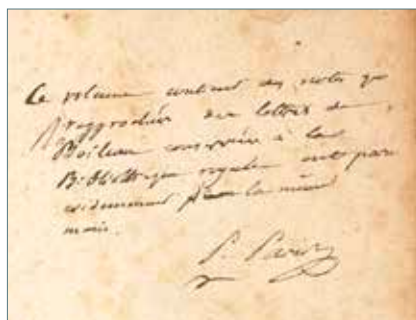 Ce volume contient des notes qui
rapprochées des lettres de
Boileau conservées à la
Bibliothèque royale ont paru
évidemment de la même
main.
P. Paris